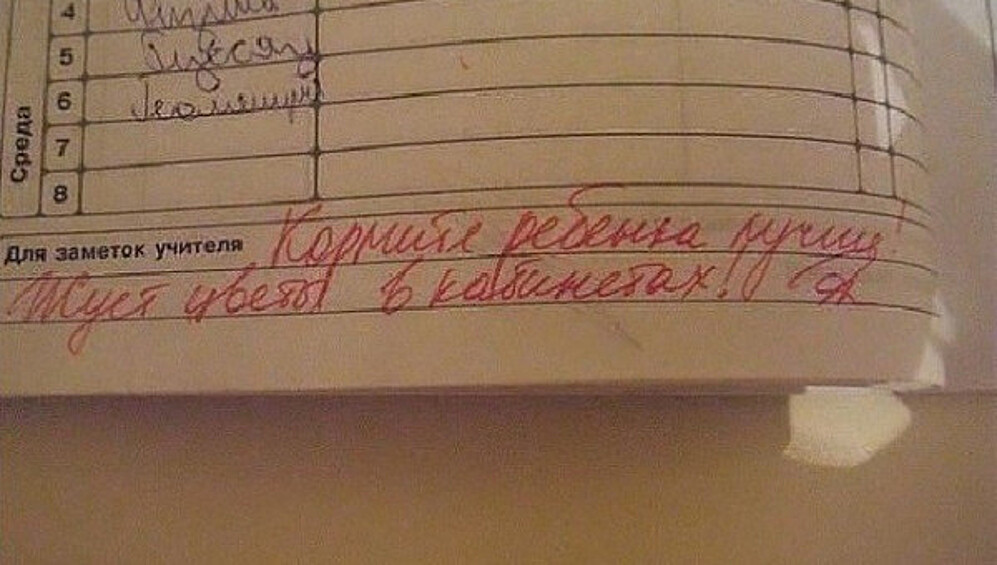 Среда
4
5 Русский
6 Геометрия
7
8
Для заметок учителя Кормите ребенка лучше!
Жует цветы в кабинетах!